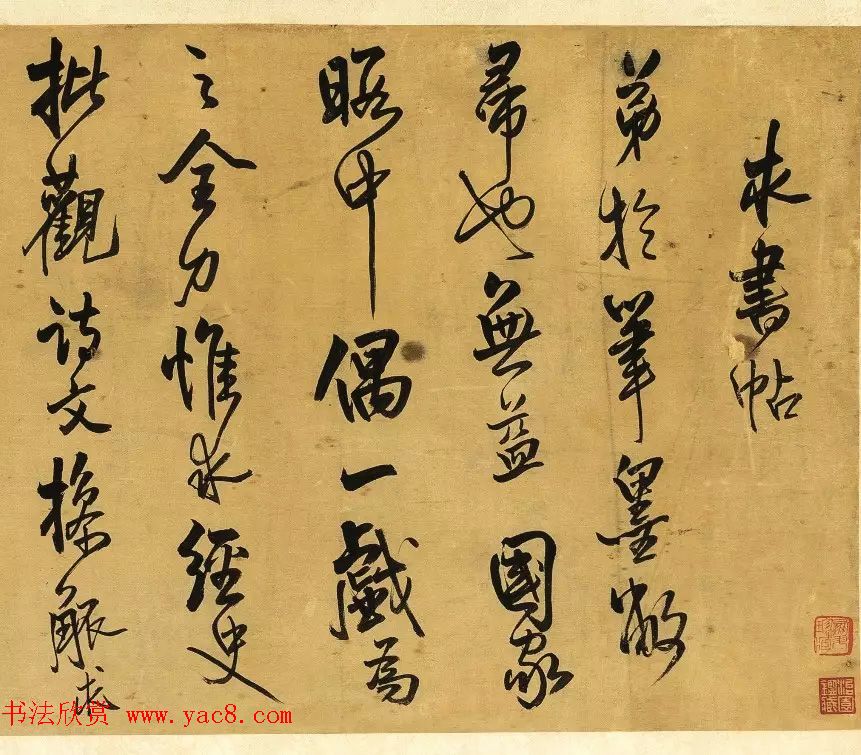 求書帖
弟於筆墨敝
帚也無益國家
暇中偶一戲為
之全力惟求經史
批觀詩文操觚
书法欣赏 www.yac8.com